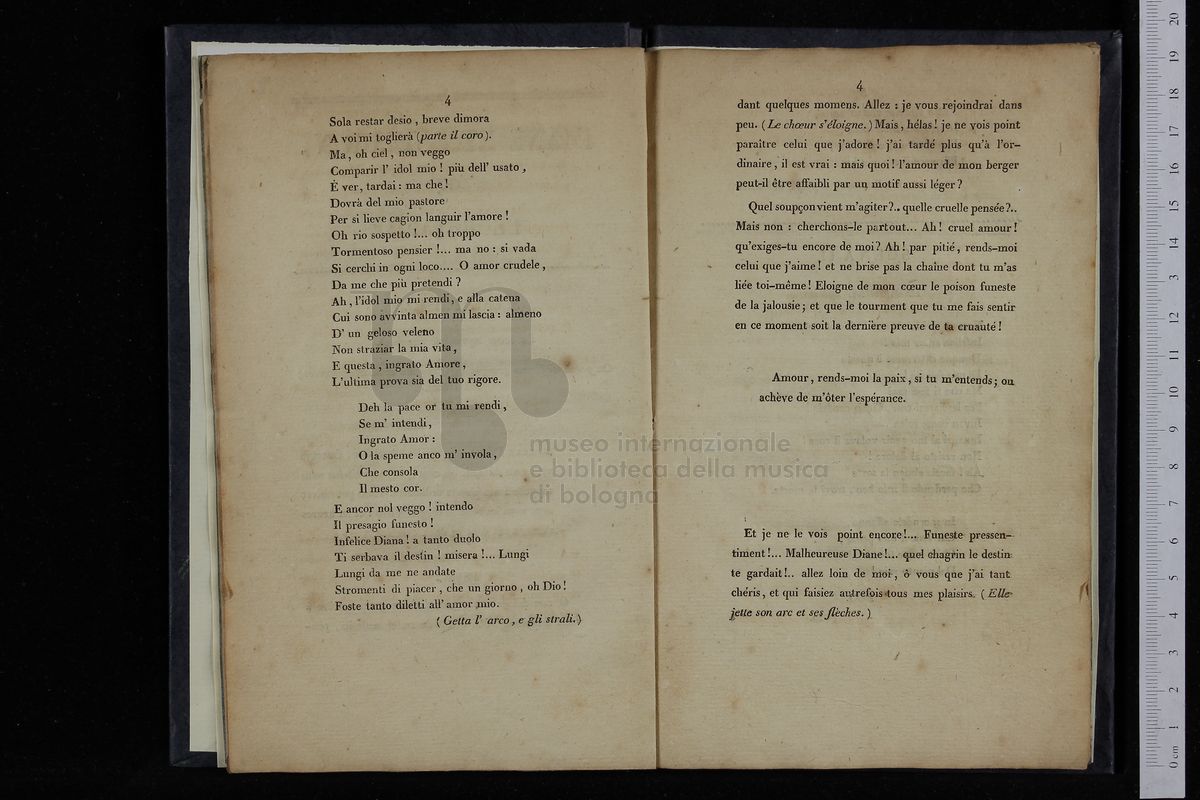 4
Sola restar desio , breve dimora
A voi mi toglierà (parte il coro).
Ma, oh ciel, non veggo
Comparir l' idol mio ! più dell' usato ,
È ver, tardai : ma che !
Dovrà del mio pastore
Per si lieve cagion languir l'amore !
Oh rio sospetto !... oh troppo
Tormentoso pensier !... ma no : si vada
Si cerchi in ogni loco.... O amor crudele ,
Da me che più pretendi ?
Ah , l'idol mio mi rendi, e alla catena
Cui sono avvinta almen mi lascia : almeno
D' un geloso veleno
Non straziar la mia vita ,
E questa , ingrato Amore ,
L'ultima prova sia del tuo rigore.
Deh la pace or tu mi rendi ,
Se m' intendi ,
Ingrato Amor :
O la speme anco m' invola ,
Che consola
Il mesto cor.
E ancor nol veggo ! intendo
Il presagio funesto !
Infelice Diana ! a tanto duolo
Ti serbava il destin ! misera !... Lungi
Lungi da me ne andate
Stromenti di piacer , che un giorno , oh Dio !
Foste tanto diletti all' amor mio.
( Getta l' arco , e gli strali.)
4
dant quelques momens. Allez : je vous rejoindrai dans
peu. (Le chœur s'éloigne.) Mais , hélas ! je ne vois point
paraître celui que j'adore ! j'ai tardé plus qu'à l'or-
dinaire , il est vrai : mais quoi ! l'amour de mon berger
peut-il être affaibli par un motif aussi léger ?
Quel soupçon vient m'agiter ?.. quelle cruelle pensée ?..
Mais non : cherchons-le partout... Ah ! cruel amour !
qu'exiges-tu encore de moi ? Ah ! par pitié , rends-moi
celui que j'aime ! et ne brise pas la chaîne dont tu m'as
liée toi-même ! Eloigne de mon cœur le poison funeste
de la jalousie ; et que le tourment que tu me fais sentir
en ce moment soit la dernière preuve de ta cruauté !
Amour , rends-moi la paix , si tu m'entends ; ou
achève de m'ôter l'espérance.
Et je ne le vois point encore !... Funeste pressen-
timent !... Malheureuse Diane !... quel chagrin le destin
te gardait !.. allez loin de moi , ô vous que j'ai tant
chéris , et qui faisiez autrefois tous mes plaisirs. ( Elle
jette son arc et ses flèches. )
museo internazionale
e biblioteca della musica
di bologna
0 cm 1 2 3 4 5 6 7 8 9 10 11 12 13 14 15 16 17 18 19 20